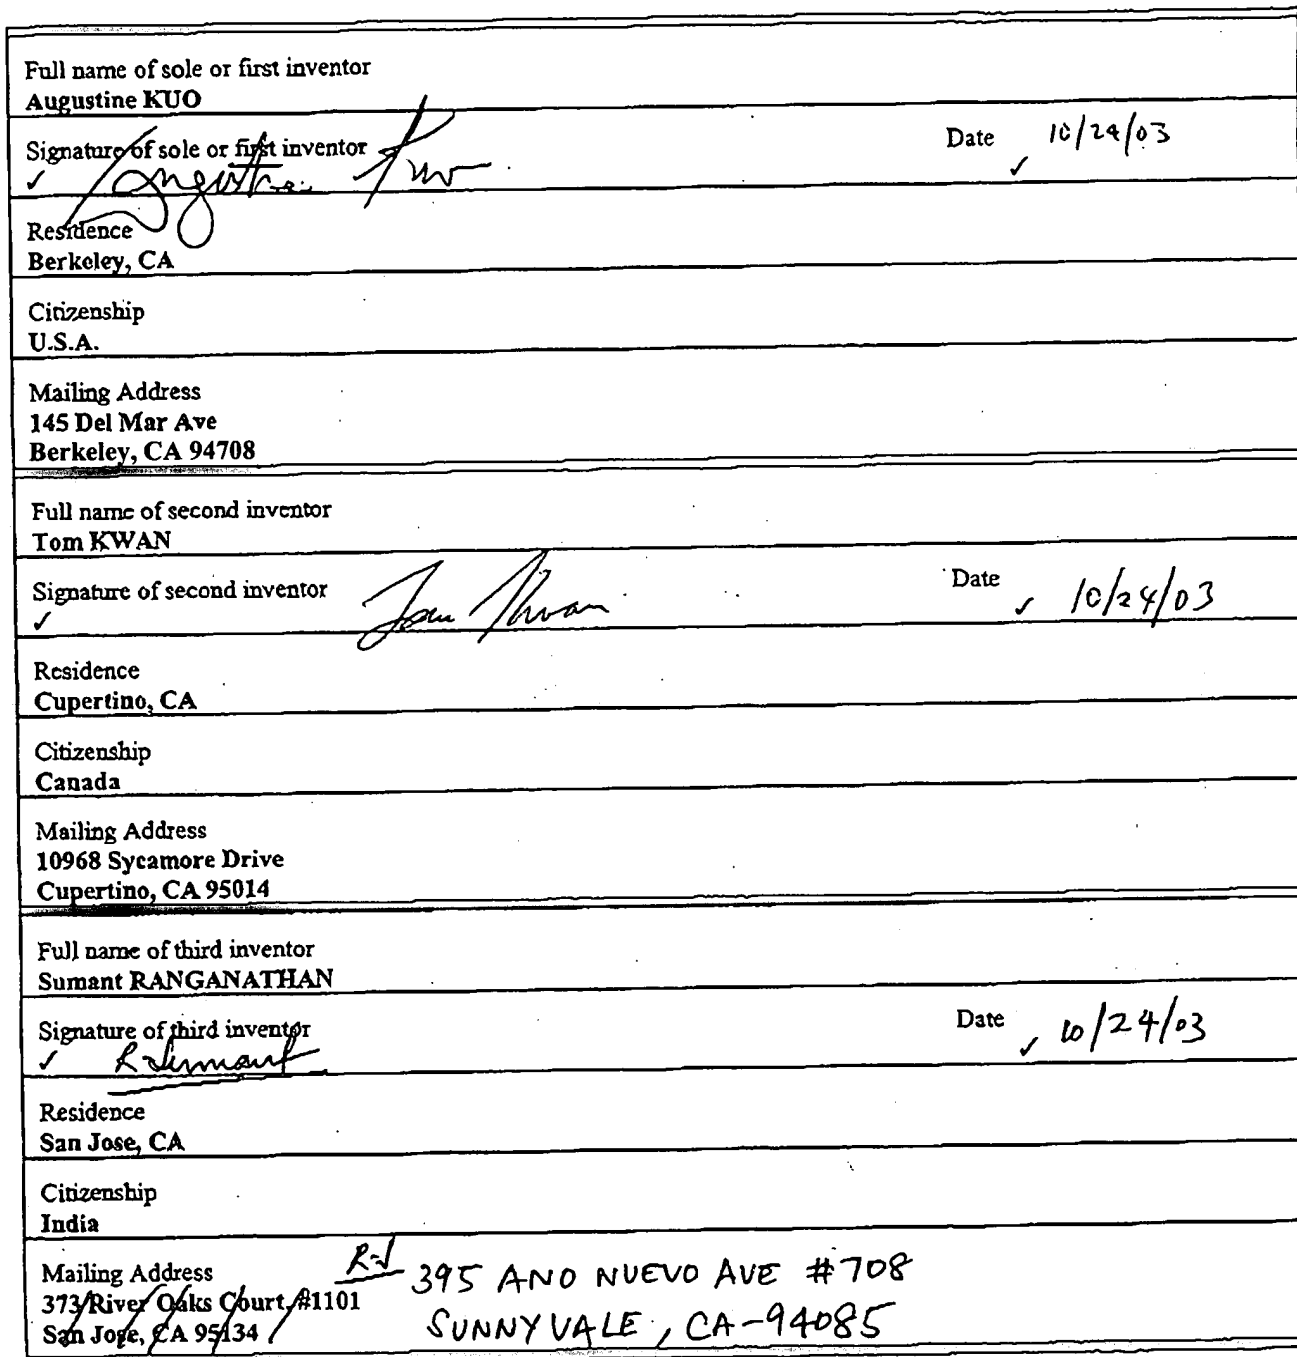 Full name of sole or first inventor
Augustine KUO
Signature of sole or first inventor Date 10/24/03
✓ Augustine Kuo ✓
Residence
Berkeley, CA
Citizenship
U.S.A.
Mailing Address
145 Del Mar Ave
Berkeley, CA 94708
Full name of second inventor
Tom KWAN
Signature of second inventor Tom Kwan Date ✓ 10/24/03
✓
Residence
Cupertino, CA
Citizenship
Canada
Mailing Address
10968 Sycamore Drive
Cupertino, CA 95014
Full name of third inventor
Sumant RANGANATHAN
Signature of third inventor Date ✓ 10/24/03
✓ R Sumant
Residence
San Jose, CA
Citizenship
India
Mailing Address 395 ANO NUEVO AVE #708
373 River Oaks Court, #1101
San Jose, CA 95134 SUNNYVALE, CA-94085